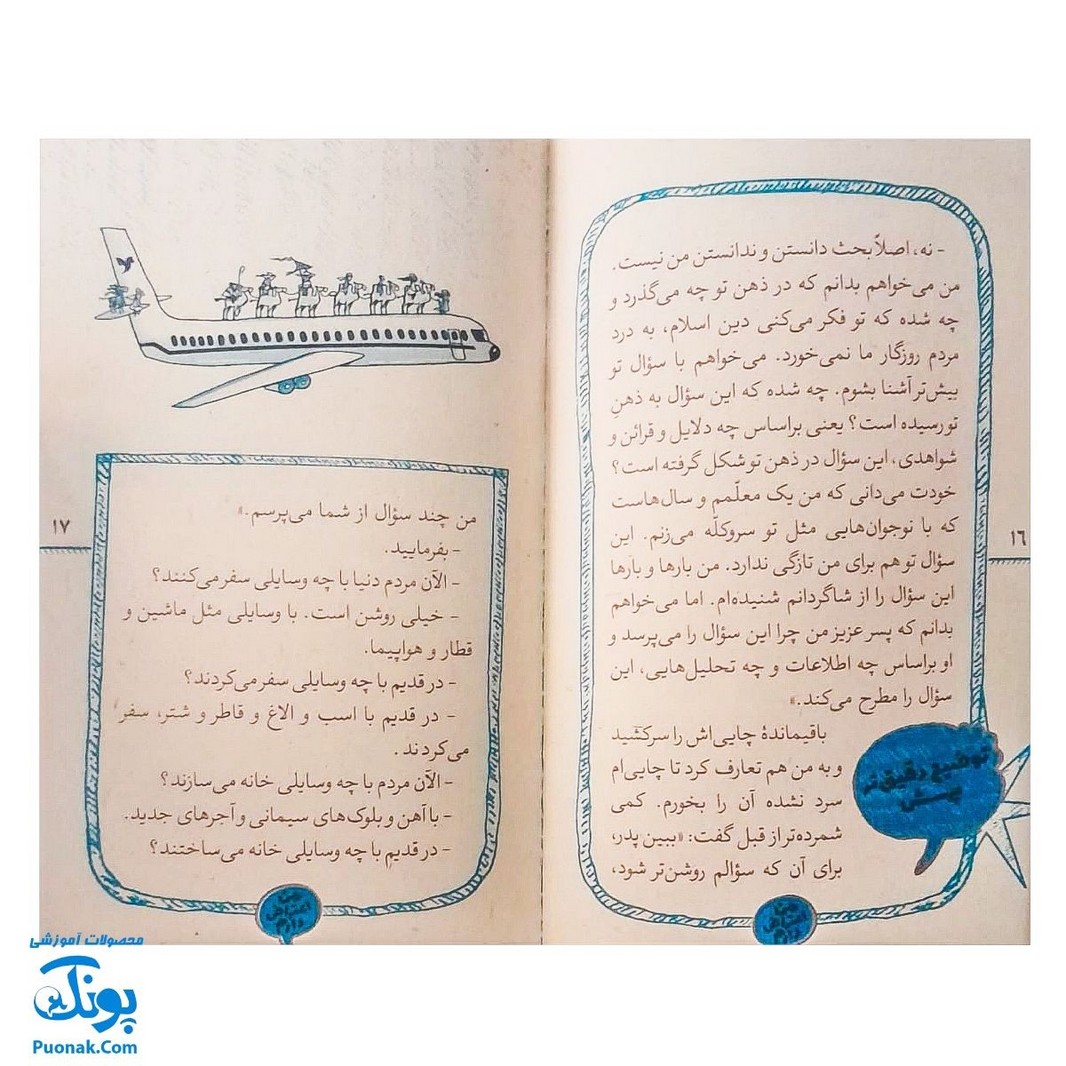 - نه، اصلاً بحث دانستن و ندانستن من نیست.
من می‌خواهم بدانم که در ذهن تو چه می‌گذرد و
چه شده که تو فکر می‌کنی دین اسلام، به درد
مردم روزگار ما نمی‌خورد. می‌خواهم با سؤال تو
بیش‌تر آشنا بشوم. چه شده که این سؤال به ذهنِ
تو رسیده است؟ یعنی براساس چه دلایل و قرائن و
شواهدی، این سؤال در ذهن تو شکل گرفته است؟
خودت می‌دانی که من یک معلّمم و سال‌هاست
که با نوجوان‌هایی مثل تو سروکلّه می‌زنم. این
سؤال تو هم برای من تازگی ندارد. من بارها و بارها
این سؤال را از شاگردانم شنیده‌ام. اما می‌خواهم
بدانم که پسر عزیز من چرا این سؤال را می‌پرسد و
او براساس چه اطلاعات و چه تحلیل‌هایی، این
سؤال را مطرح می‌کند.»
باقیماندهٔ چایی‌اش را سرکشید
و به من هم تعارف کرد تا چایی‌ام
سرد نشده آن را بخورم. کمی
شمرده‌تر از قبل گفت: «ببین پدر،
برای آن که سؤالم روشن‌تر شود،
توضیح دقیق‌تر
پرسش
۱۶
من اعتراض دارم
من چند سؤال از شما می‌پرسم.»
- بفرمایید.
- الآن مردم دنیا با چه وسایلی سفر می‌کنند؟
- خیلی روشن است. با وسایلی مثل ماشین و
قطار و هواپیما.
- در قدیم با چه وسایلی سفر می‌کردند؟
- در قدیم با اسب و الاغ و قاطر و شتر، سفر
می‌کردند.
- الآن مردم با چه وسایلی خانه می‌سازند؟
- با آهن و بلوک‌های سیمانی و آجرهای جدید.
- در قدیم با چه وسایلی خانه می‌ساختند؟
۱۷
من اعتراض دارم
محصولات آموزشی
پونک
Puonak.Com